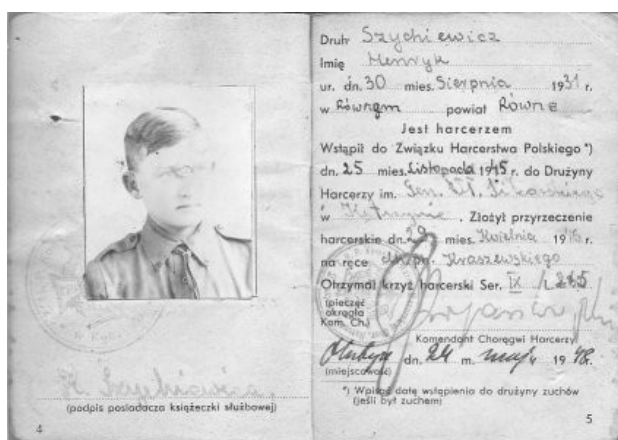 H. Szychiewicz
(podpis posiadacza książeczki służbowej)
4
Druh Szychiewicz
Imię Henryk
ur. dn. 30 mies. Sierpnia 1931 r.
w Równem powiat Równe
Jest harcerzem
Wstąpił do Związku Harcerstwa Polskiego *)
dn. 25 mies. Listopada 1945 r. do Drużyny
Harcerzy im. Gen. Wł. Sikorskiego
w Kętrzynie . Złożył przyrzeczenie
harcerskie dn. 29 mies. Kwietnia 1946 r.
na ręce Kraszewskiego
Otrzymał krzyż harcerski Ser. IX L. 265
(pieczęć
okrągła
Kom. Ch.)
Komendant Chorągwi Harcerzy
Olsztyn dn. 24 m. maj 1948 r.
(miejscowość)
*) Wpisać datę wstąpienia do drużyny zuchów
(jeśli był zuchem)
5